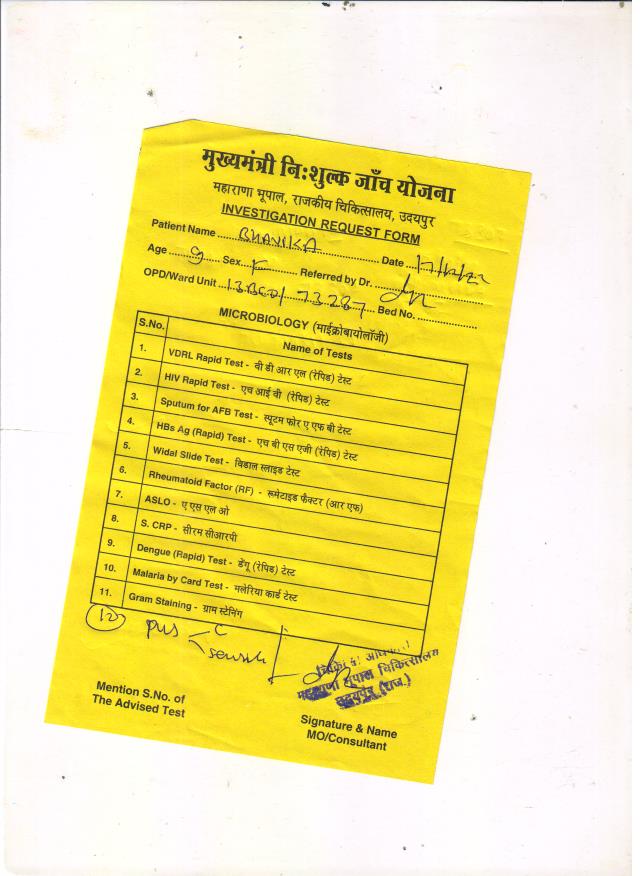 मुख्यमंत्री नि:शुल्क जाँच योजना
महाराणा भूपाल, राजकीय चिकित्सालय, उदयपुर
INVESTIGATION REQUEST FORM
Patient Name BHAVIKA Date 17/12/22
Age 9 Sex F Referred by Dr.
OPD/Ward Unit 73287 Bed No.
MICROBIOLOGY (माईक्रोबायोलॉजी)
S.No. Name of Tests
1. VDRL Rapid Test - वी डी आर एल (रेपिड) टेस्ट
2. HIV Rapid Test - एच आई वी (रेपिड) टेस्ट
3. Sputum for AFB Test - स्पूटम फोर ए एफ बी टेस्ट
4. HBs Ag (Rapid) Test - एच बी एस एजी (रेपिड) टेस्ट
5. Widal Slide Test - विडाल स्लाइड टेस्ट
6. Rheumatoid Factor (RF) - रूमेटाइड फैक्टर (आर एफ)
7. ASLO - ए एस एल ओ
8. S. CRP - सीरम सीआरपी
9. Dengue (Rapid) Test - डेंगू (रेपिड) टेस्ट
10. Malaria by Card Test - मलेरिया कार्ड टेस्ट
11. Gram Staining - ग्राम स्टेनिंग
12 pus C
महाराणा भूपाल चिकित्सालय
उदयपुर (राज.)
Mention S.No. of
The Advised Test
Signature & Name
MO/Consultant